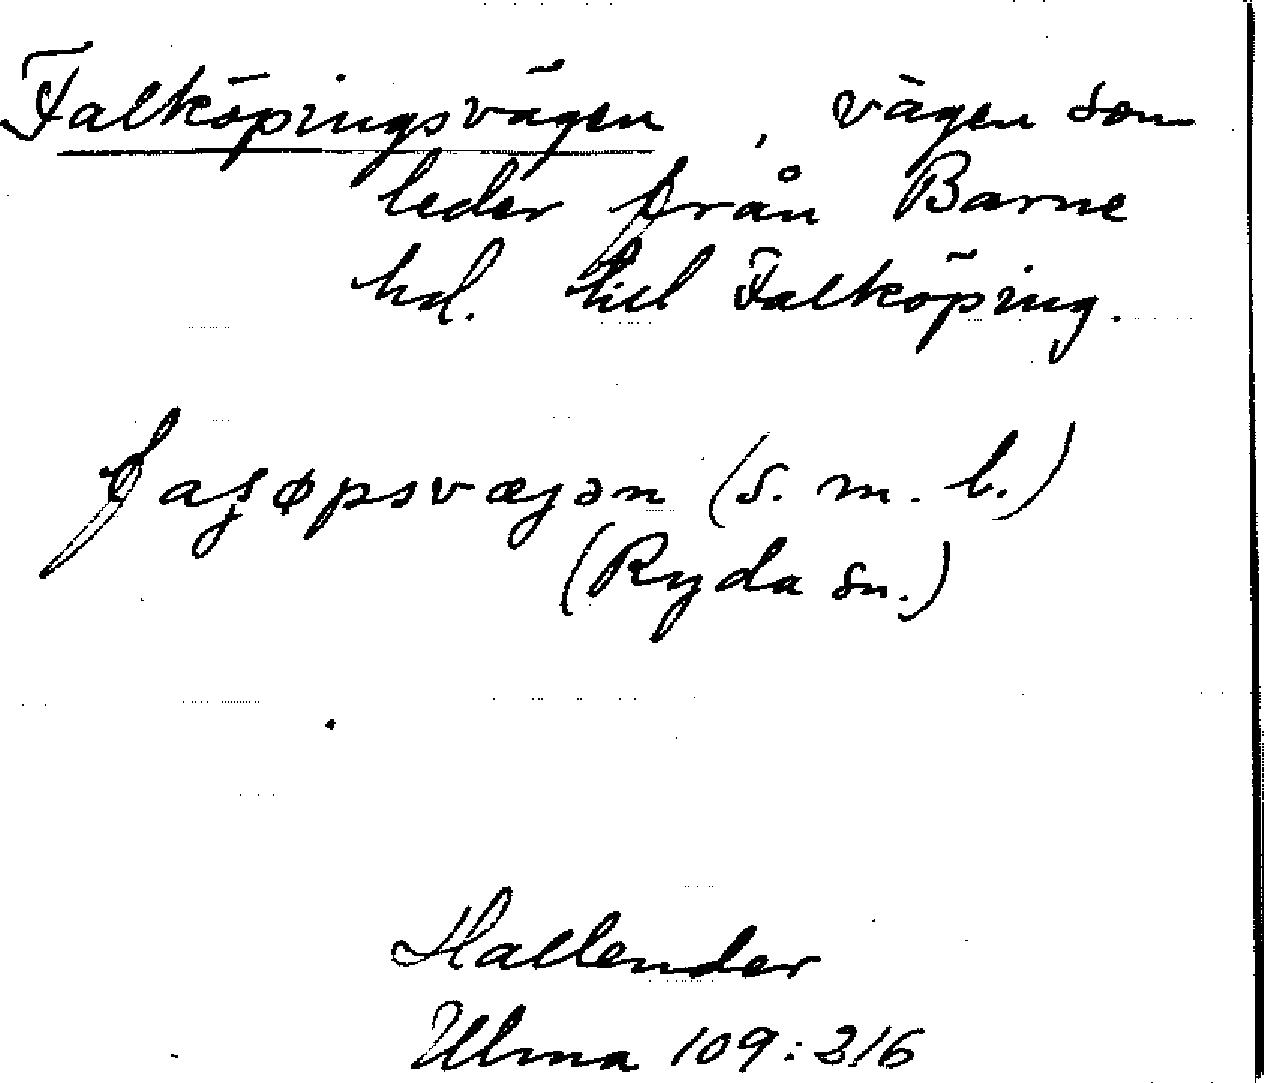 Falköpingsvägen, vägen som
leder från Barne
hd. till Falköping.
faʃøpsvæjən (s. m. b.)
(Ryda sn.)
Hallender
Ulma 109:216